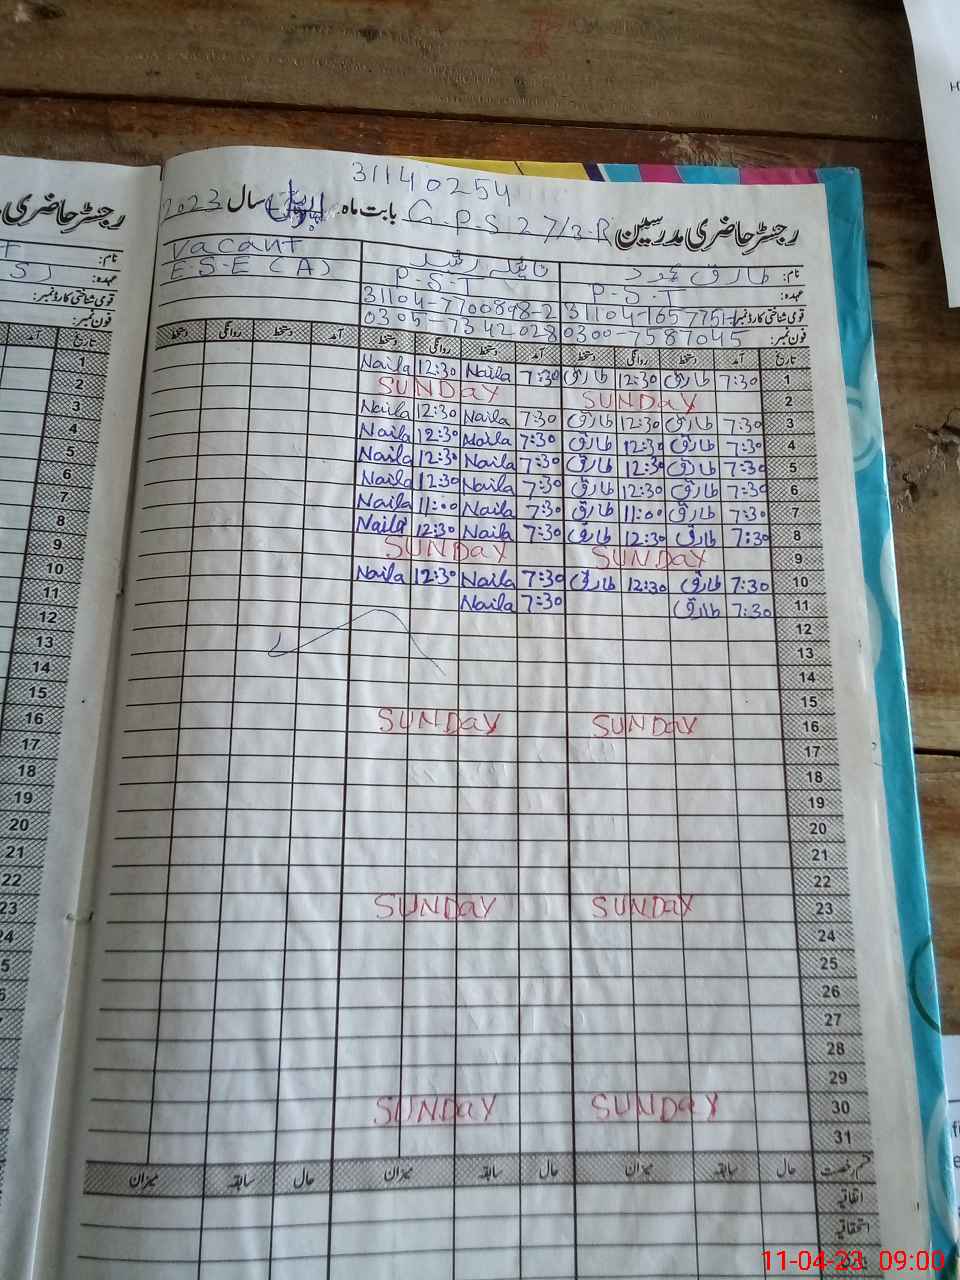 31140254
رجسٹر حاضری مدرسین G.P.S 27/3-R بابت ماہ اپریل سال 2023
رجسٹر حاضری
نام: طارق محمود نائلہ رشید Vacant
عہدہ: P.S.T P.S.T E.S.E (A)
قومی شناختی کارڈ نمبر: 31104-7700898-2
فون نمبر: 0300-7587045 0305-7342028
تاریخ آمد دستخط روانگی دستخط آمد دستخط روانگی دستخط آمد دستخط روانگی دستخط
1 7:30 طارق 12:30 طارق 7:30 Naila 12:30 Naila
2 SUNDAY SUNDAY
3 7:30 طارق 12:30 طارق 7:30 Naila 12:30 Naila
4 7:30 طارق 12:30 طارق 7:30 Naila 12:30 Naila
5 7:30 طارق 12:30 طارق 7:30 Naila 12:30 Naila
6 7:30 طارق 12:30 طارق 7:30 Naila 12:30 Naila
7 7:30 طارق 11:00 طارق 7:30 Naila 11:00 Naila
8 7:30 طارق 12:30 طارق 7:30 Naila 12:30 Naila
9 SUNDAY SUNDAY
10 7:30 طارق 12:30 طارق 7:30 Naila 12:30 Naila
11 7:30 طارق 7:30 Naila
12
13
14
15
16 SUNDAY SUNDAY
17
18
19
20
21
22
23 SUNDAY SUNDAY
24
25
26
27
28
29
30 SUNDAY SUNDAY
31
قسم رخصت حال سابقہ میزان حال سابقہ میزان حال سابقہ میزان
اتفاقیہ
استحقاقیہ
نام:
عہدہ:
قومی شناختی کارڈ نمبر:
فون نمبر:
تاریخ
1
2
3
4
5
6
7
8
9
10
11
12
13
14
15
16
17
18
19
20
21
22
23
24
11-04-23 09:00